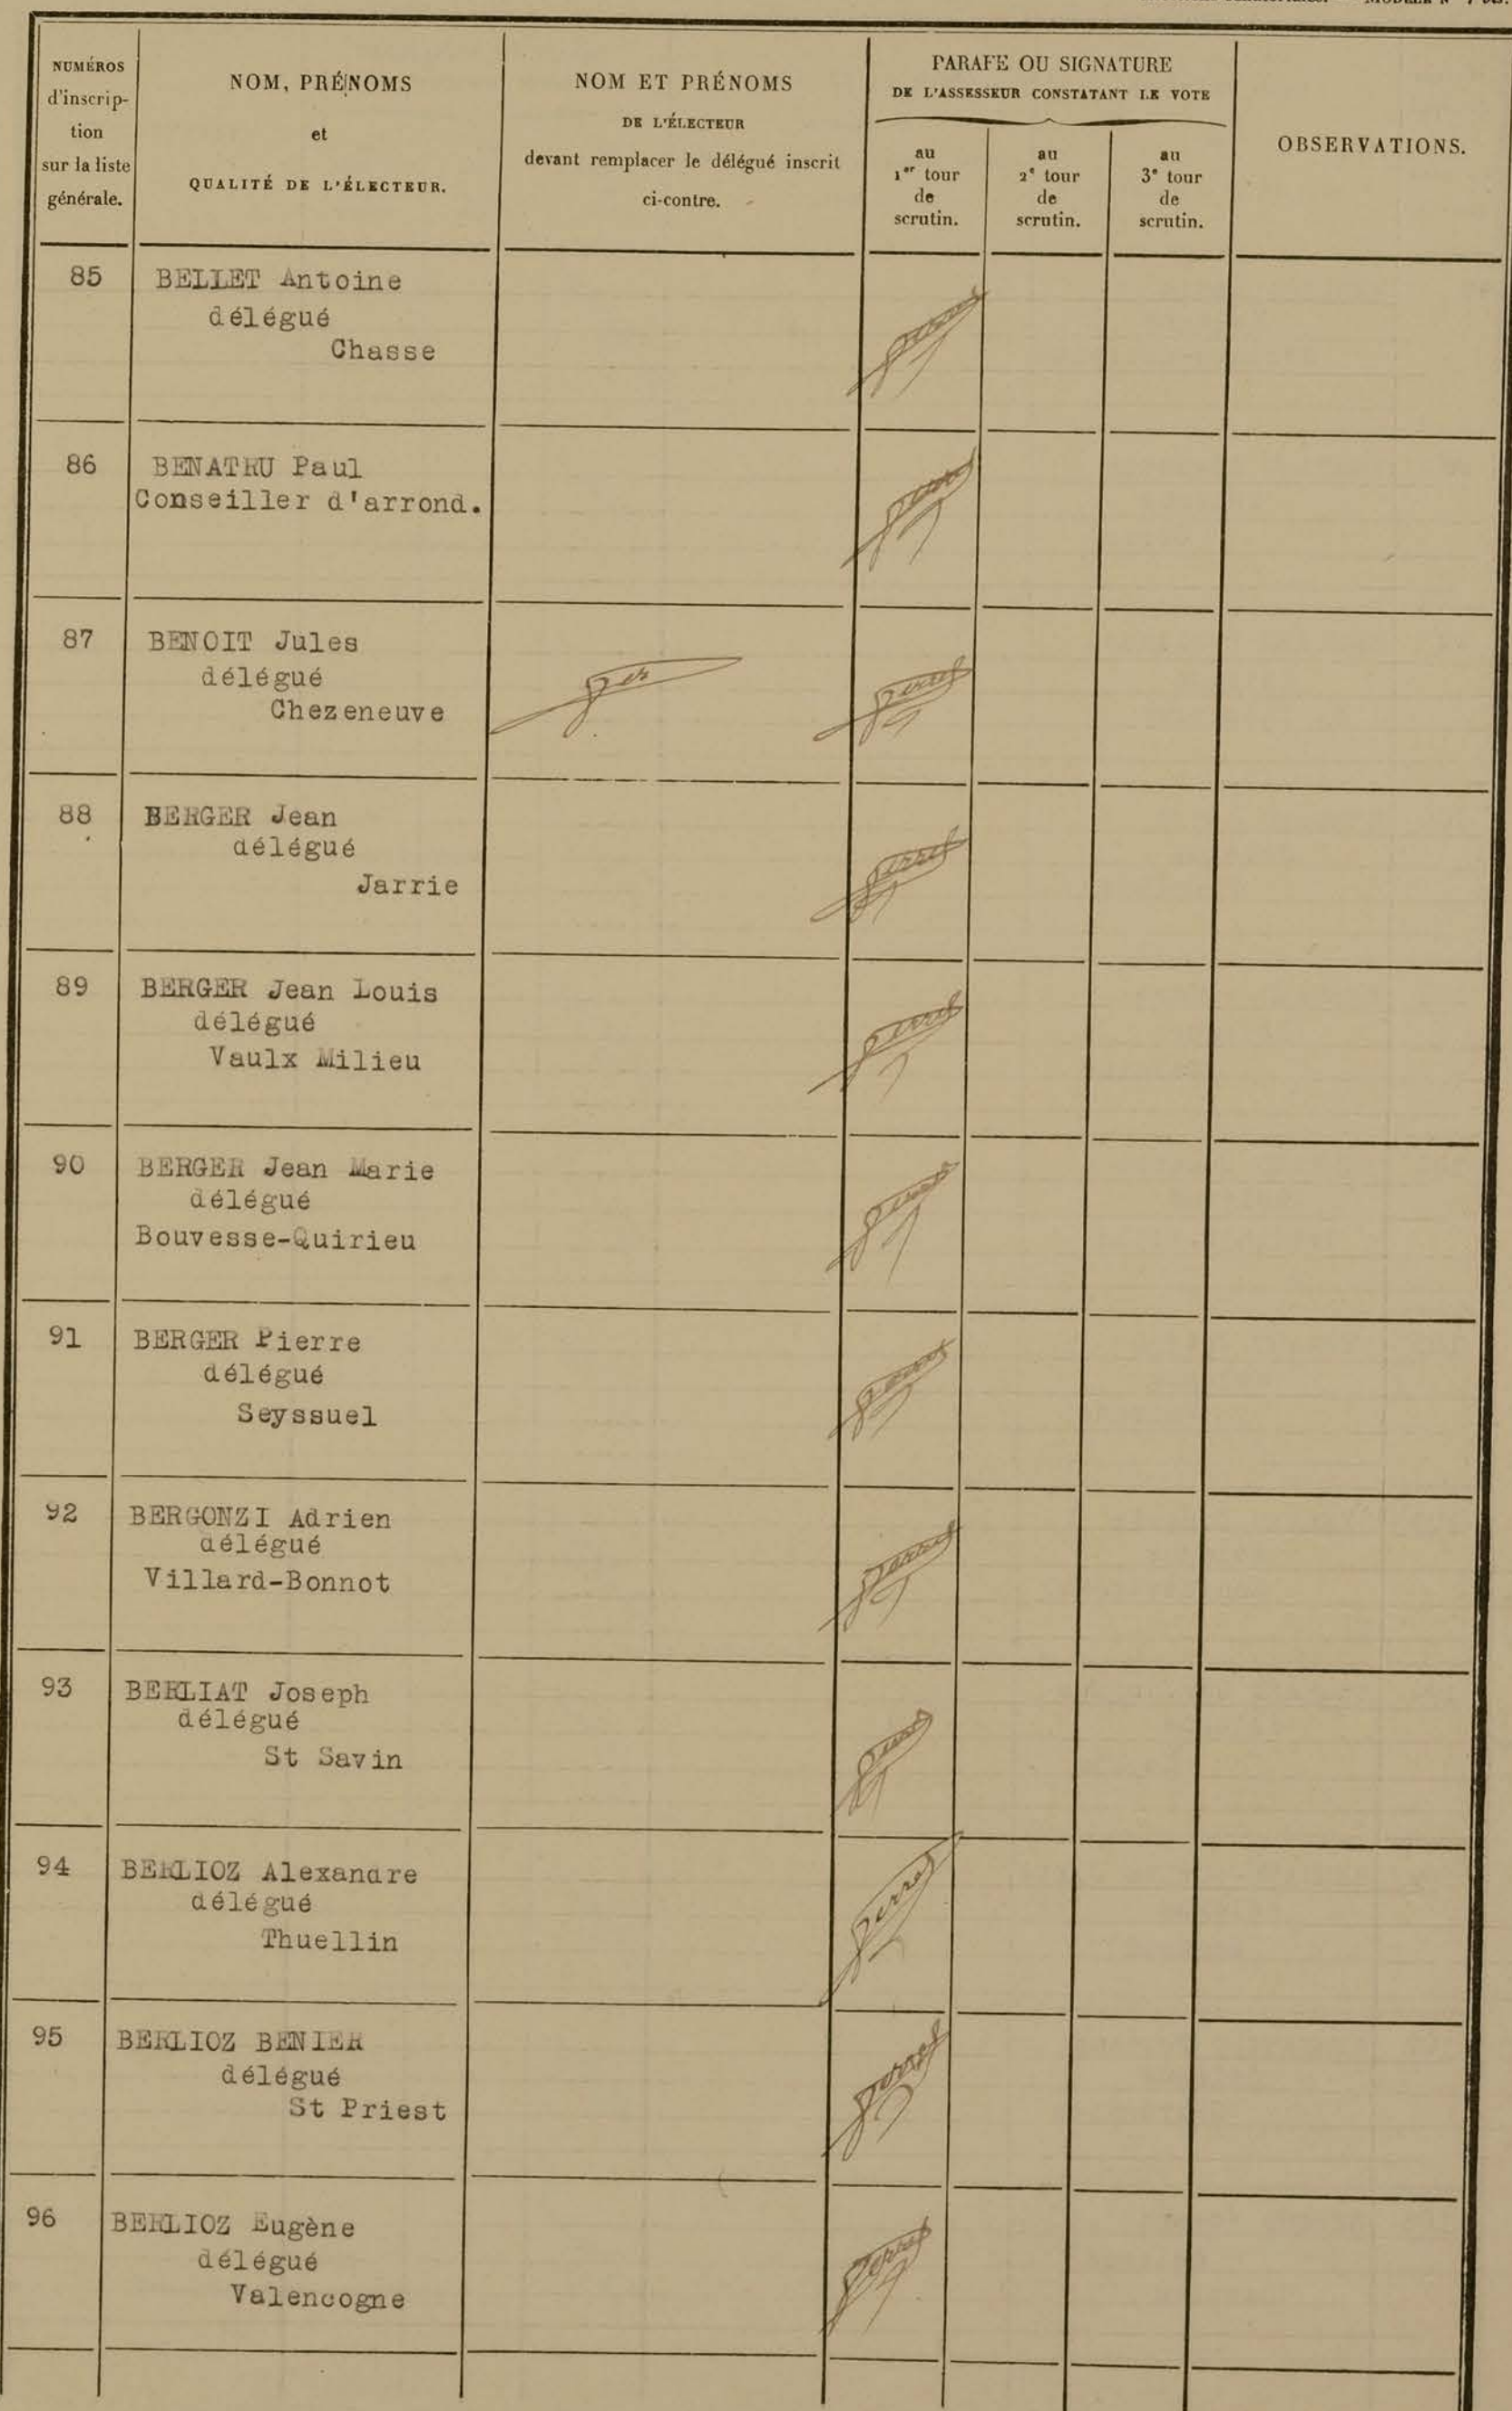 NUMÉROS
d'inscrip-
tion
sur la liste
générale.
NOM, PRÉNOMS
et
QUALITÉ DE L'ÉLECTEUR.
NOM ET PRÉNOMS
DE L'ÉLECTEUR
devant remplacer le délégué inscrit
ci-contre.
PARAFE OU SIGNATURE
DE L'ASSESSEUR CONSTATANT LE VOTE
au
1er tour
de
scrutin.
au
2e tour
de
scrutin.
au
3e tour
de
scrutin.
OBSERVATIONS.
85 BELLET Antoine
délégué
Chasse
86 BENATRU Paul
Conseiller d'arrond.
87 BENOIT Jules
délégué
Chezeneuve
88 BERGER Jean
délégué
Jarrie
89 BERGER Jean Louis
délégué
Vaulx Milieu
90 BERGER Jean Marie
délégué
Bouvesse-Quirieu
91 BERGER Pierre
délégué
Seyssuel
92 BERGONZI Adrien
délégué
Villard-Bonnot
93 BERLIAT Joseph
délégué
St Savin
94 BERLIOZ Alexandre
délégué
Thuellin
95 BERLIOZ BENIER
délégué
St Priest
96 BERLIOZ Eugène
délégué
Valencogne